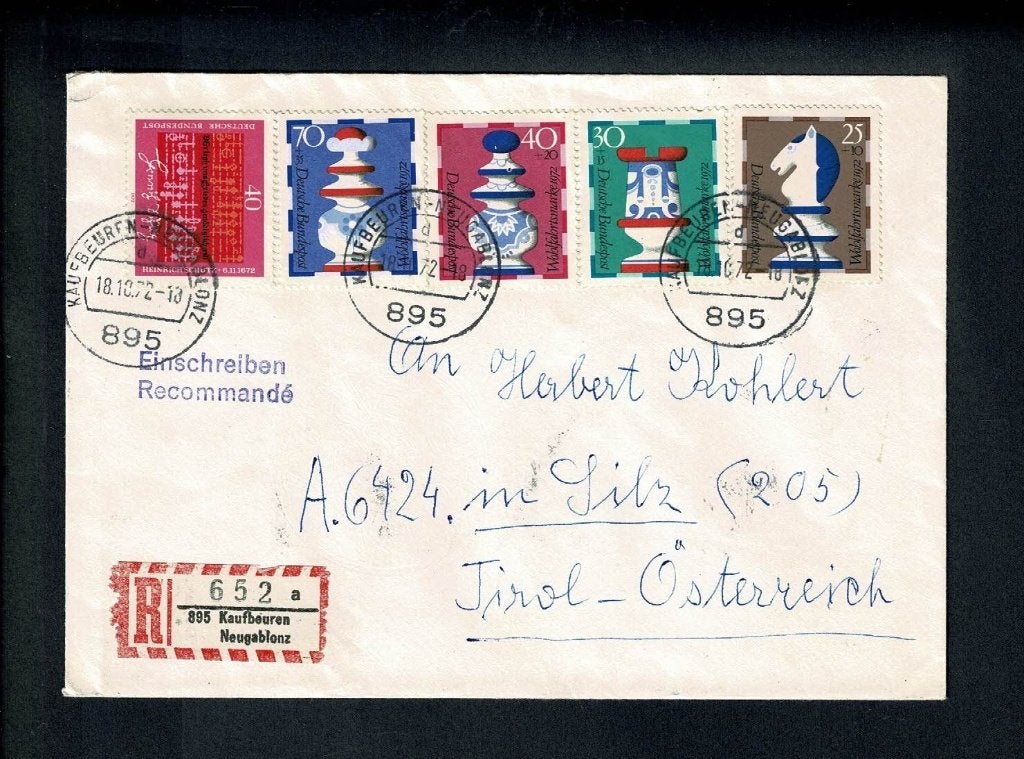 DEUTSCHE BUNDESPOST
40
HEINRICH SCHÜTZ · 6.11.1672
70
+35
Deutsche Bundespost
Wohlfahrtsmarke 1972
40
+20
Deutsche Bundespost
Wohlfahrtsmarke 1972
30
+15
Deutsche Bundespost
Wohlfahrtsmarke 1972
25
+10
Deutsche Bundespost
Wohlfahrtsmarke 1972
KAUFBEUREN-NEUGABLONZ
d
18.10.72-18
895
KAUFBEUREN-NEUGABLONZ
d
18.10.72-18
895
KAUFBEUREN-NEUGABLONZ
d
18.10.72-18
895
Einschreiben
Recommandé
An Herbert Kohlert
A.6424. in Silz (205)
Tirol - Österreich
R
652 a
895 Kaufbeuren
Neugablonz